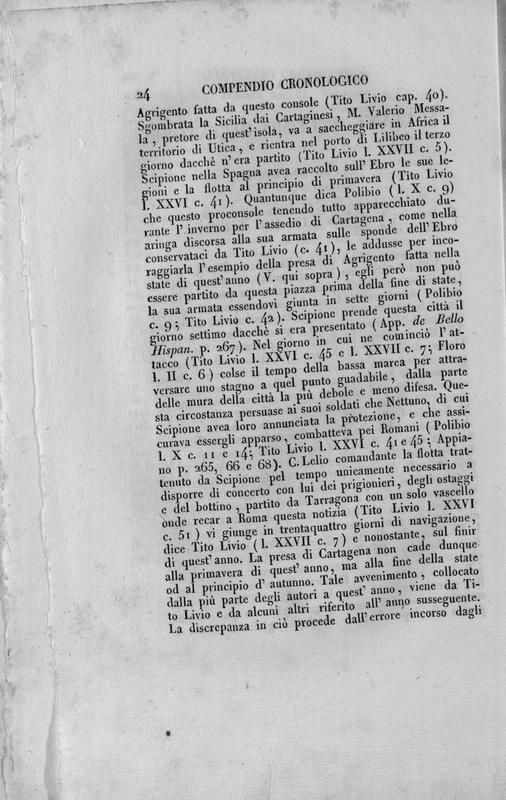 24 COMPENDIO CRONOLOGICO
Agrigento fatta da questo console (Tito Livio cap. 40).
Sgombrata la Sicilia dai Cartaginesi, M. Valerio Messa-
la, pretore di quest'isola, va a saccheggiare in Africa il
territorio di Utica, e rientra nel porto di Lilibeo il terzo
giorno dacchè n'era partito (Tito Livio l. XXVII c. 5).
Scipione nella Spagna avea raccolto sull'Ebro le sue le-
gioni e la flotta al principio di primavera (Tito Livio
l. XXVI c. 41). Quantunque dica Polibio (l. X c. 9)
che questo proconsole tenendo tutto apparecchiato du-
rante l'inverno per l'assedio di Cartagena, come nella
aringa discorsa alla sua armata sulle sponde dell'Ebro
conservataci da Tito Livio (c. 41), le addusse per inco-
raggiarla l'esempio della presa di Agrigento fatta nella
state di quest'anno (V. qui sopra), egli però non può
essere partito da questa piazza prima della fine di state,
la sua armata essendovi giunta in sette giorni (Polibio
c. 9; Tito Livio c. 42). Scipione prende questa città il
giorno settimo dacchè si era presentato (App. de Bello
Hispan. p. 267). Nel giorno in cui ne cominciò l'at-
tacco (Tito Livio l. XXVI c. 45 e l. XXVII c. 7; Floro
l. II c. 6) colse il tempo della bassa marea per attra-
versare uno stagno a quel punto guadabile, dalla parte
delle mura della città la più debole e meno difesa. Que-
sta circostanza persuase ai suoi soldati che Nettuno, di cui
Scipione avea loro annunciata la protezione, e che assi-
curava essergli apparso, combatteva pei Romani (Polibio
l. X c. 11 e 14; Tito Livio l. XXVI c. 41 e 45; Appia-
no p. 265, 66 e 68). C. Lelio comandante la flotta trat-
tenuto da Scipione pel tempo unicamente necessario a
disporre di concerto con lui dei prigionieri, degli ostaggi
e del bottino, partito da Tarragona con un solo vascello
onde recar a Roma questa notizia (Tito Livio l. XXVI
c. 51) vi giunge in trentaquattro giorni di navigazione,
dice Tito Livio (l. XXVII c. 7) e nonostante, sul finir
di quest'anno. La presa di Cartagena non cade dunque
alla primavera di quest'anno, ma alla fine della state
od al principio d'autunno. Tale avvenimento, collocato
dalla più parte degli autori a quest'anno, viene da Ti-
to Livio e da alcuni altri riferito all'anno susseguente.
La discrepanza in ciò procede dall'errore incorso dagli